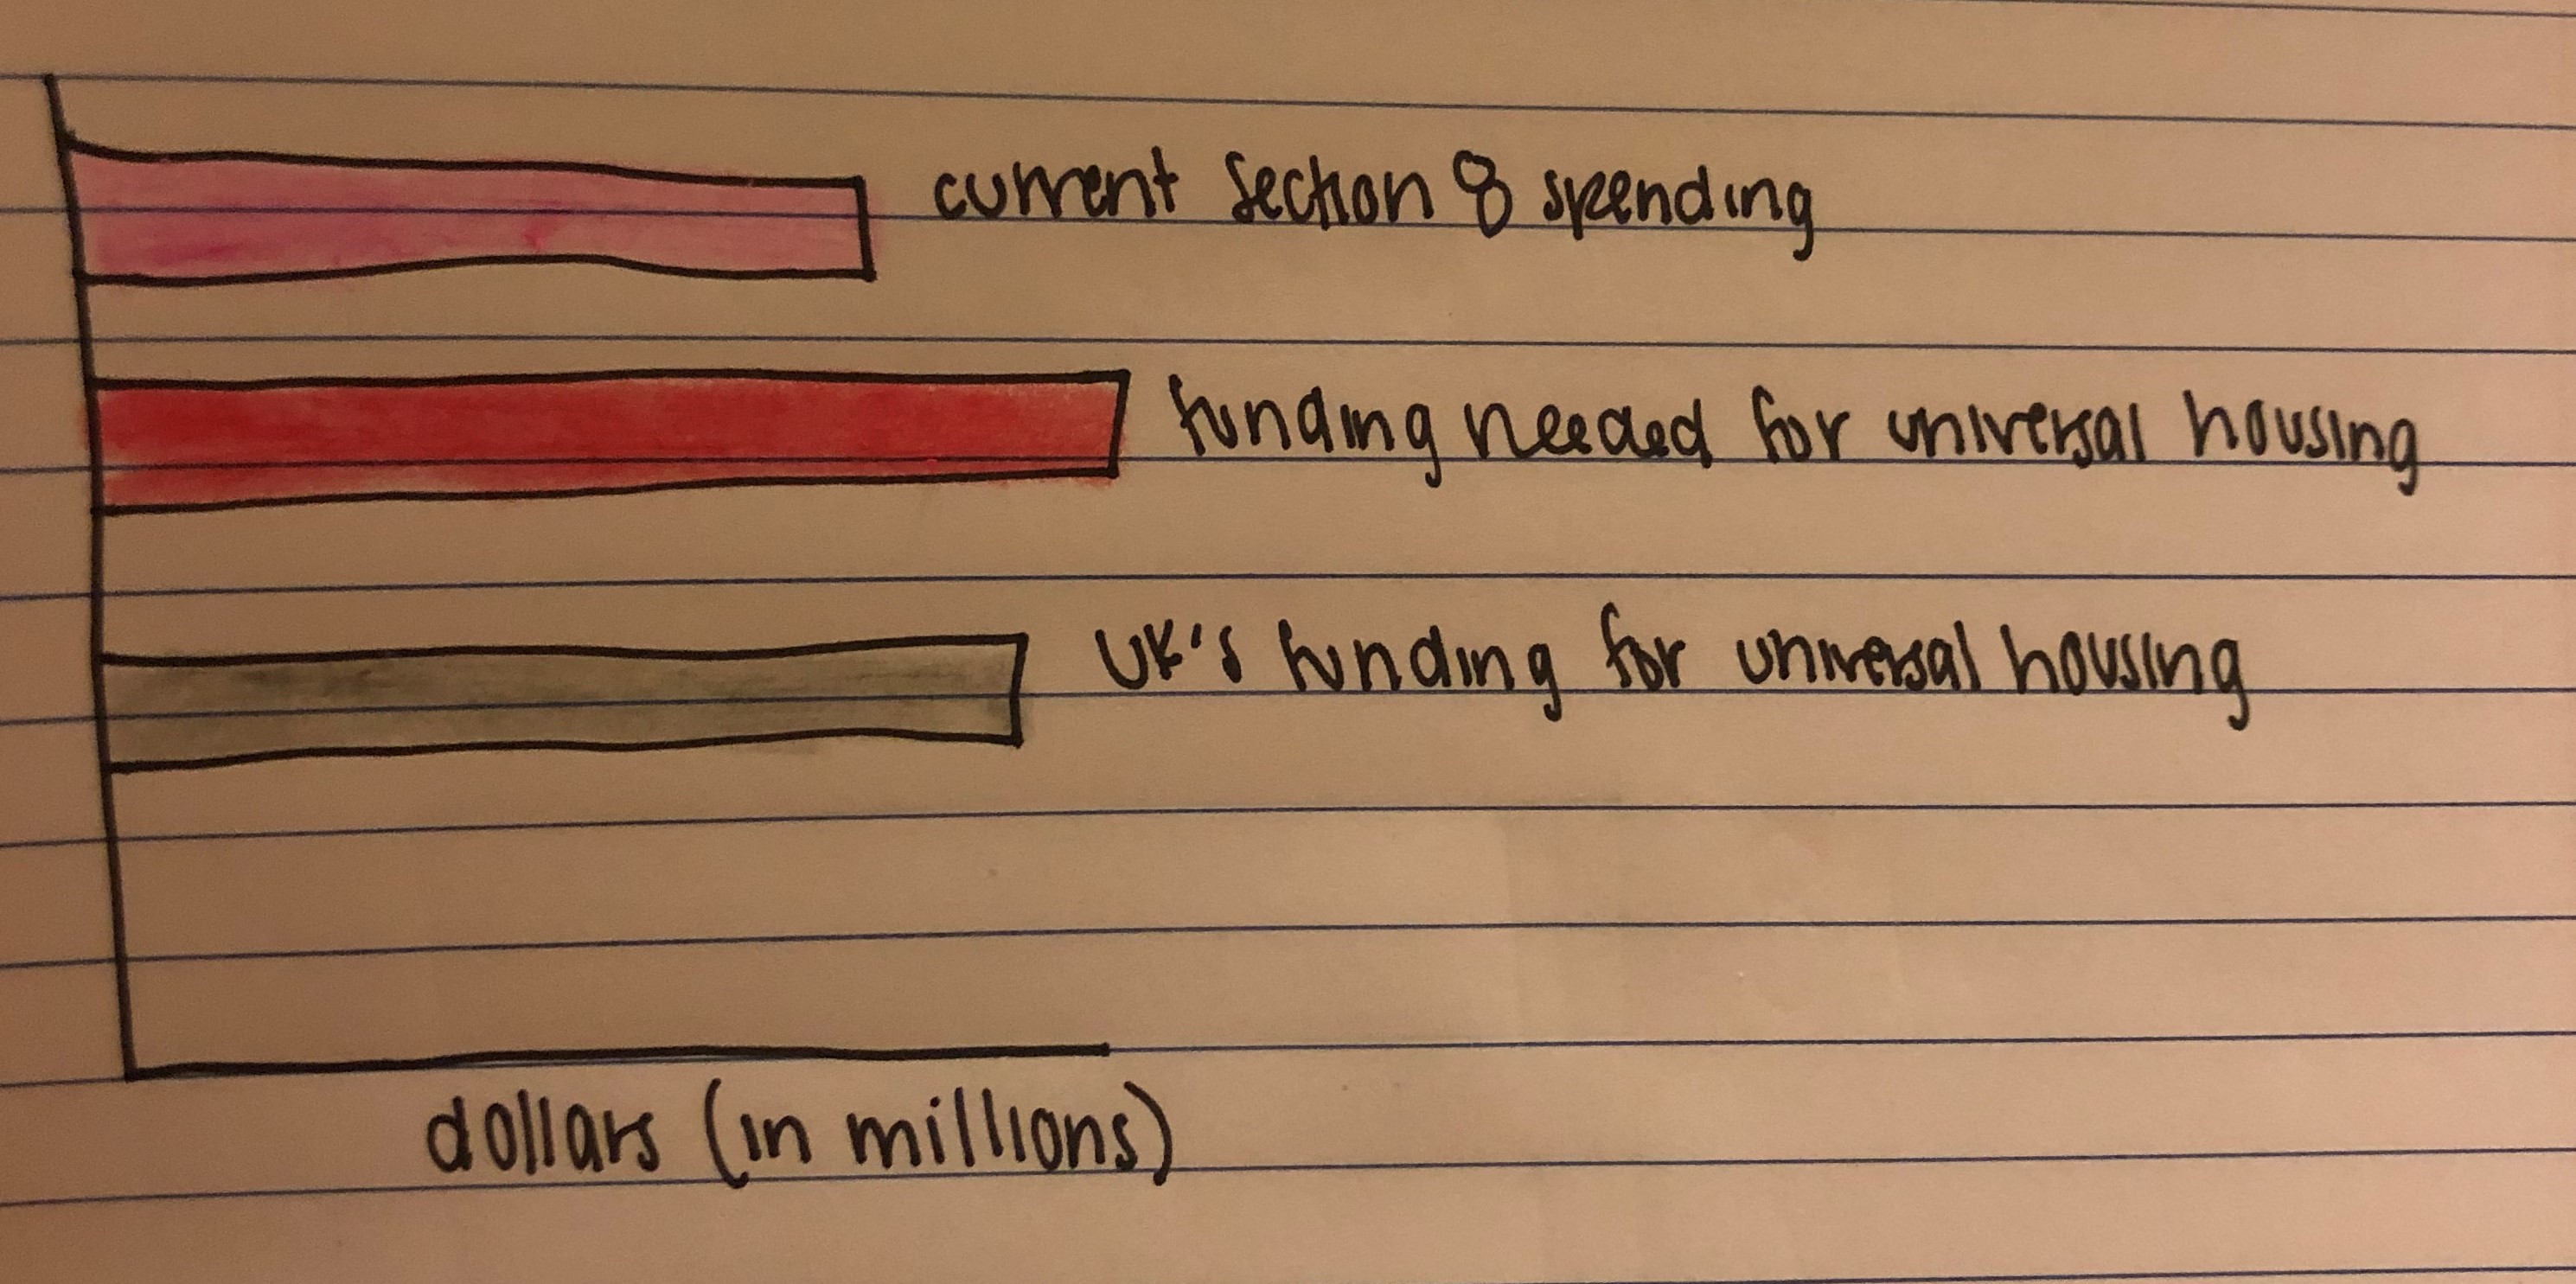 current section 8 spending
funding needed for universal housing
UK's funding for universal housing
dollars (in millions)